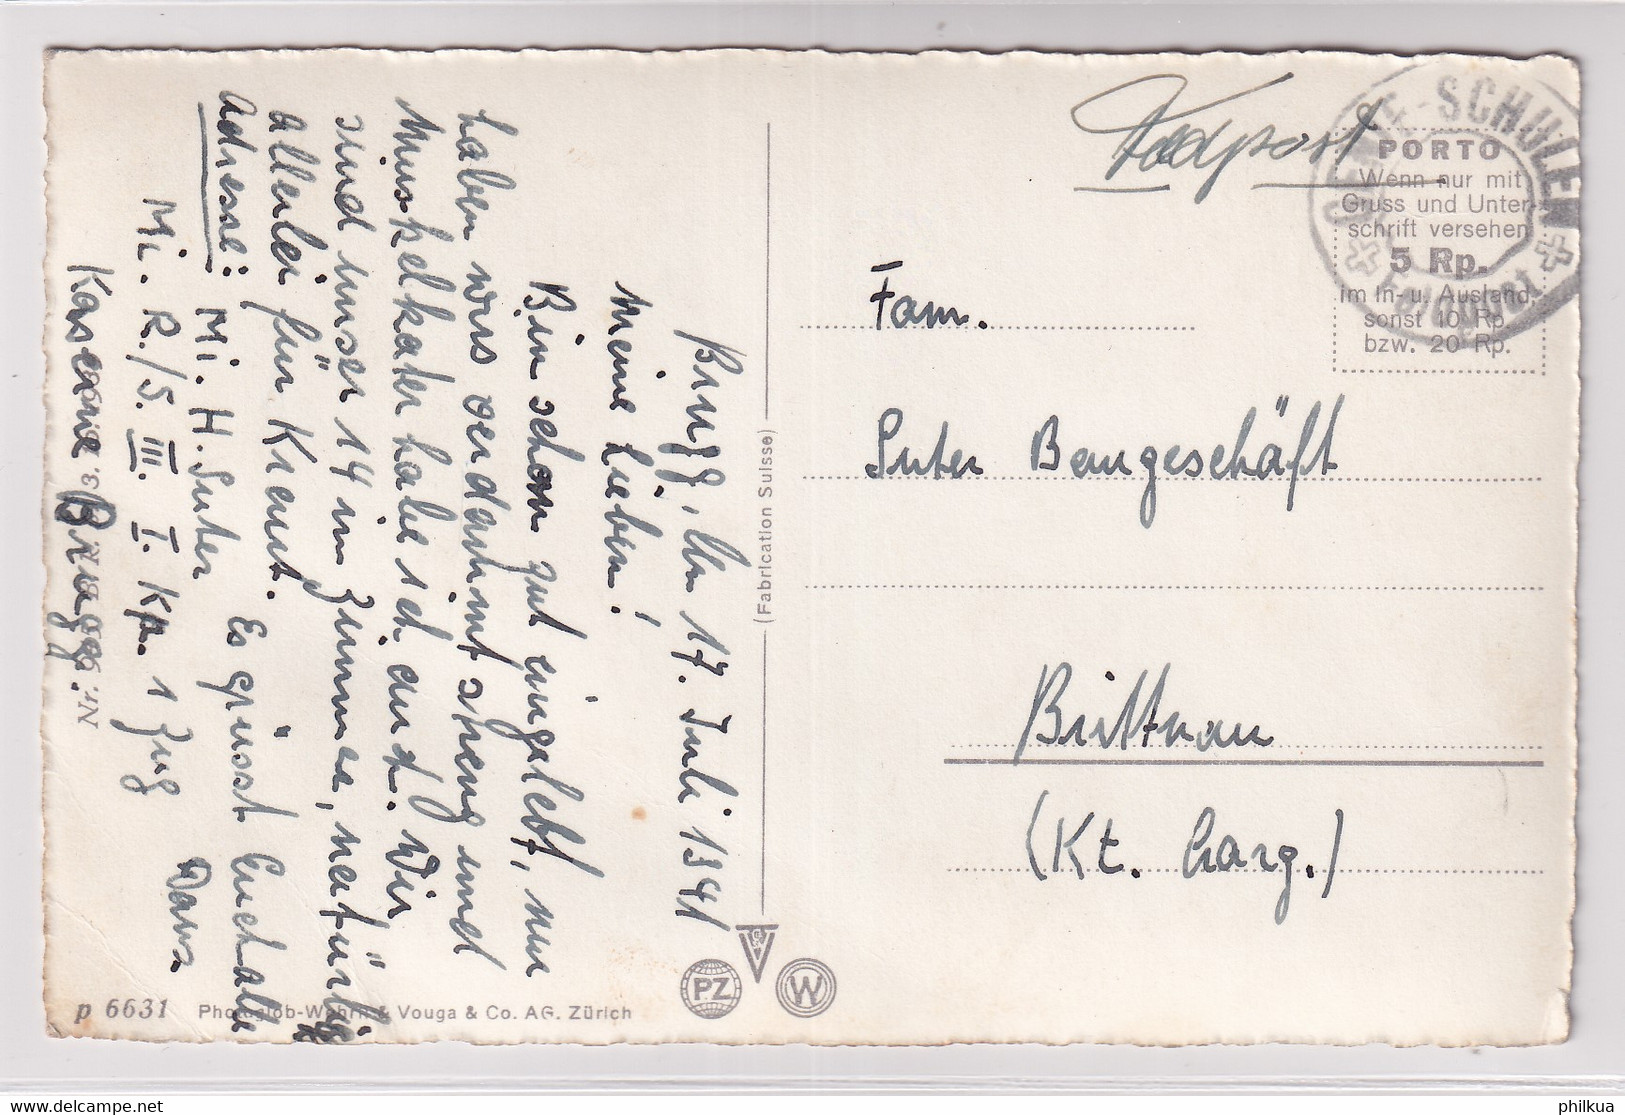 Brugg, den 17. Juli 1941
Meine Lieben!
Bin schon gut eingelebt, nur
haben wirs verdammt streng und
Muskelkater habe ich auch. Wir
sind unser 14 im Zimmer, natürlig
allerlei für Kraut.
Es grüsst Euch alle
Hans
Adresse: Mi. H. Suter
Mi. R./S. III. I. Kp. 1 Zug
Kaserne Brugg.
Feldpost
SCHULEN
Feldpost
PORTO
Wenn nur mit
Gruss und Unter-
schrift versehen
5 Rp.
im In- u. Ausland,
sonst 10 Rp.
bzw. 20 Rp.
Fam.
Suter Baugeschäft
Brittnau
(Kt. Aarg.)
(Fabrication Suisse)
PZ
W
p 6631 Photoglob-Wehrli & Vouga & Co. AG. Zürich
philkua